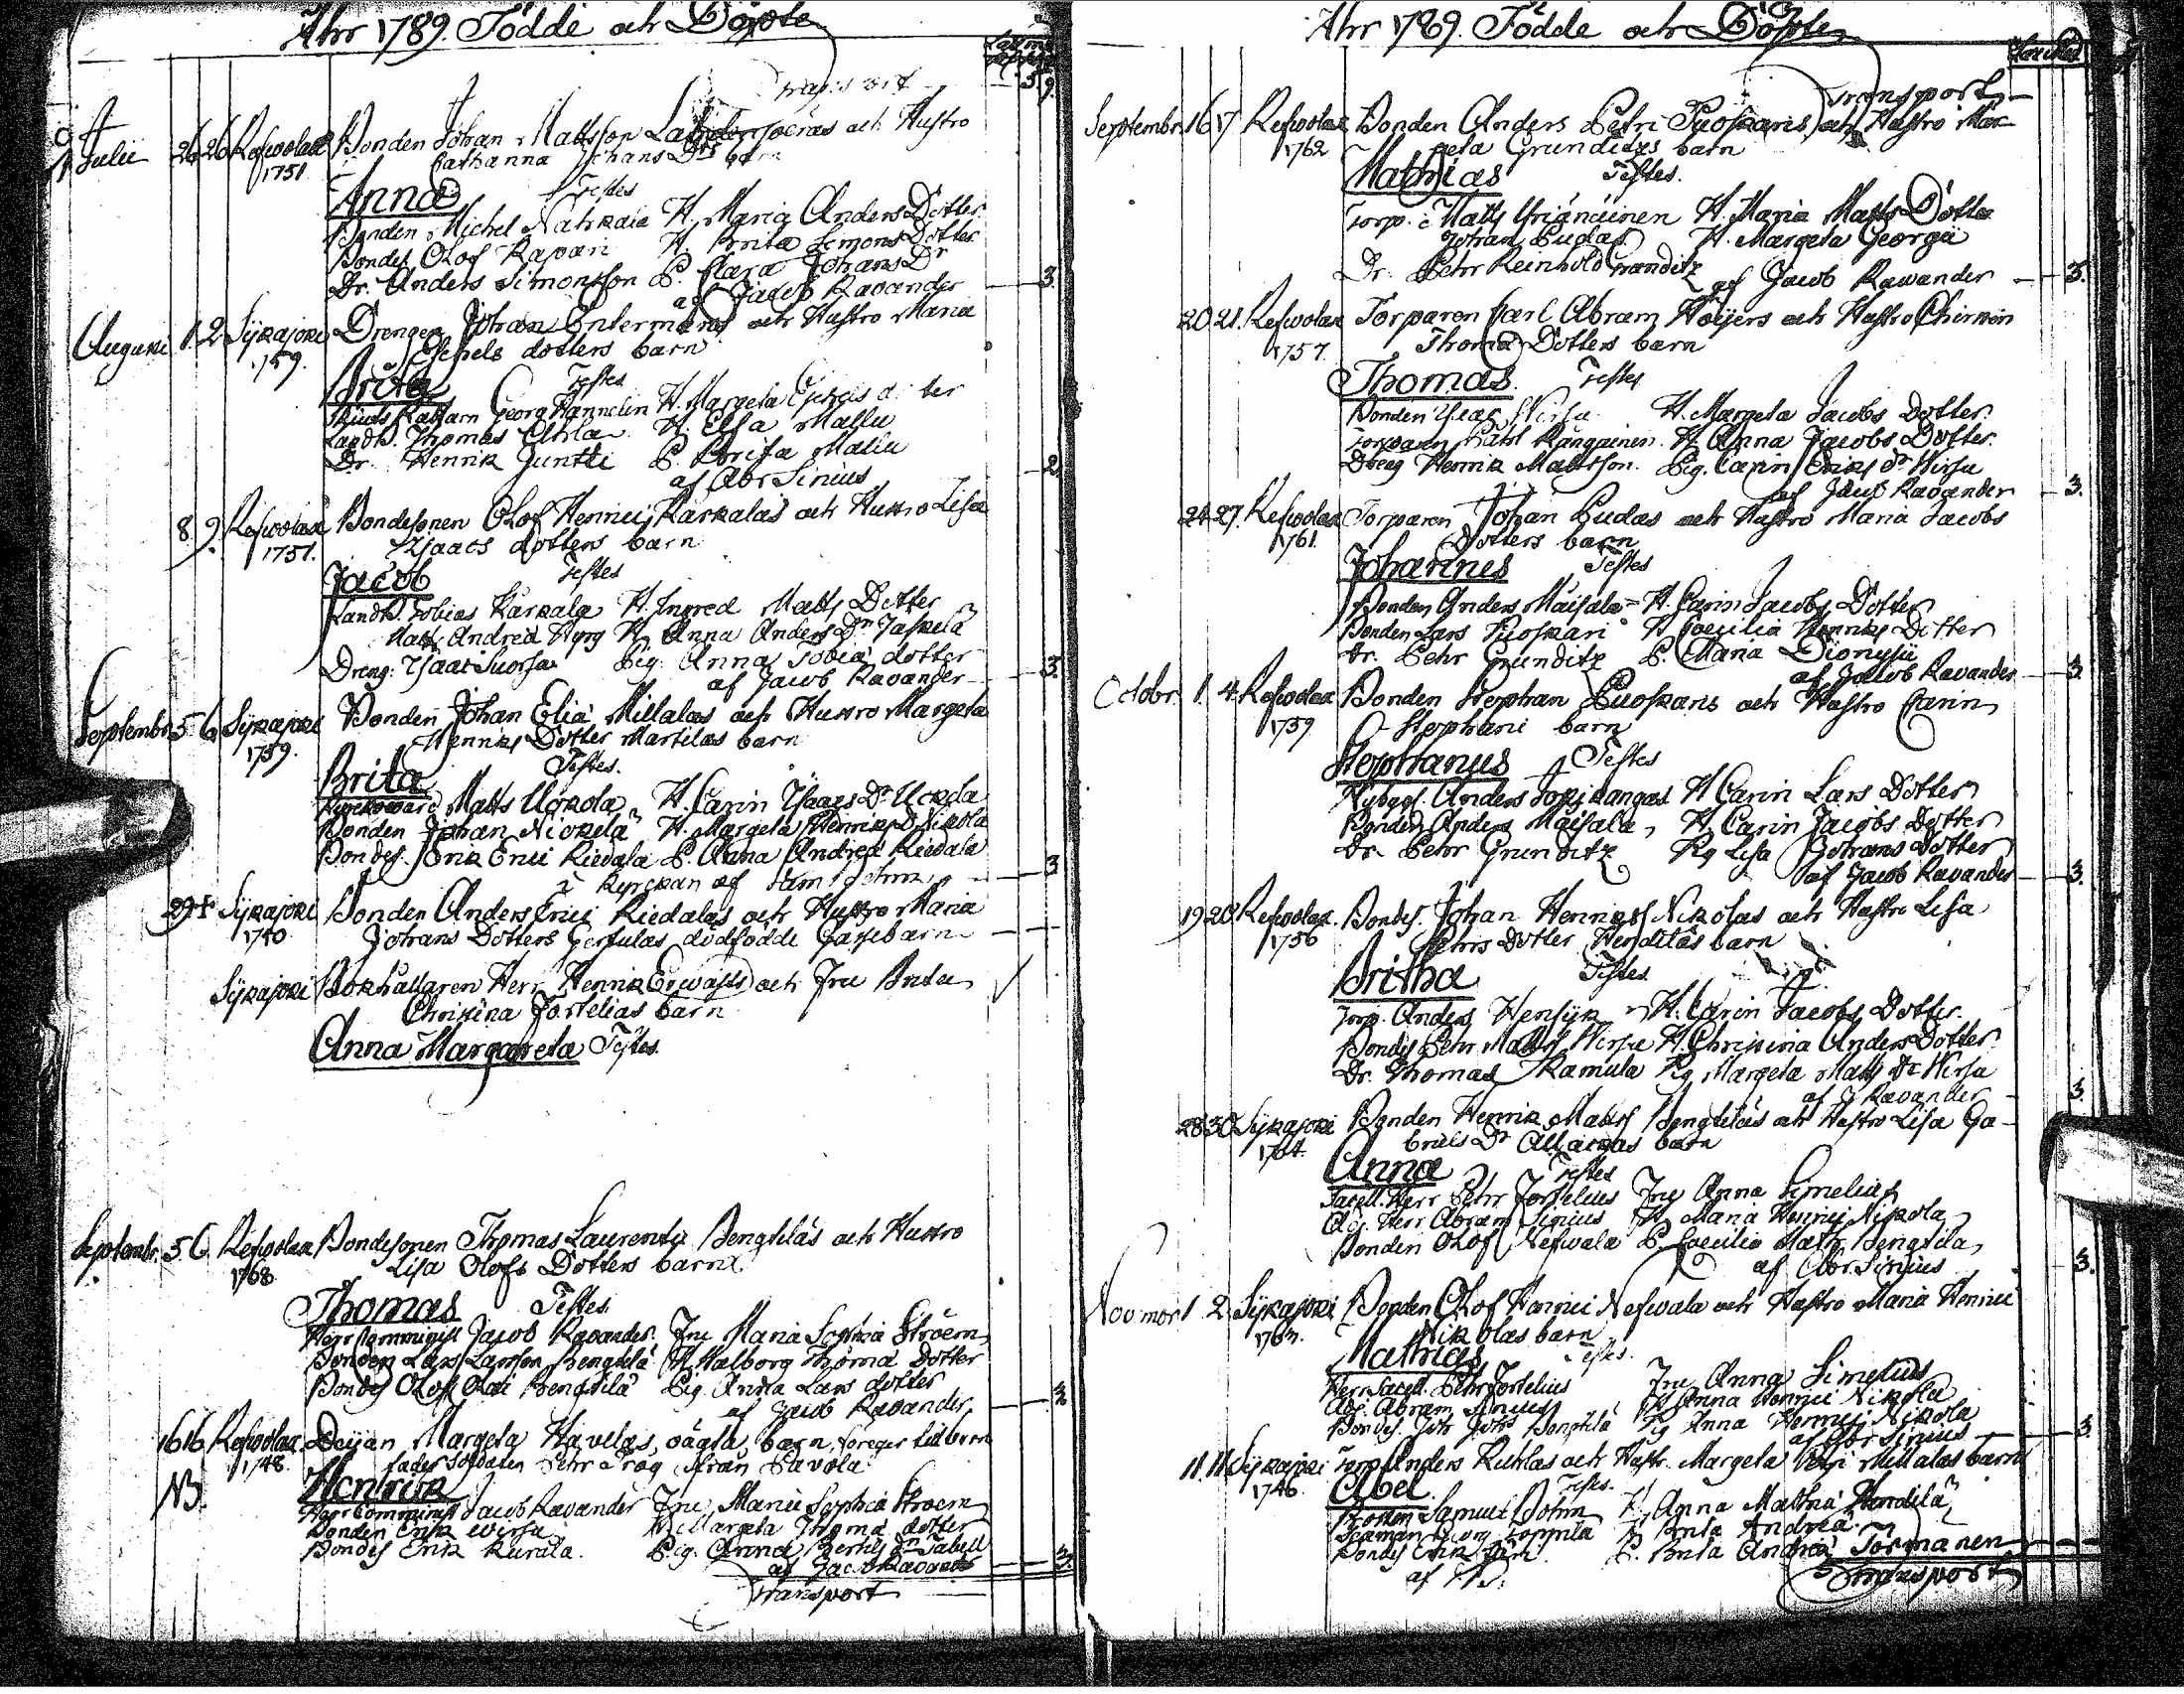 Ahr 1789. Födde och Döpte
Transport
Julii 26 26 Refwolax Bonden Johan Mattsson och Hustro
1751 Catharina Johans Drs barn
Anna Testes
Bonden Michel Nahkala H. Maria Anders Dotter
Bondes. Olof Rapari H. Brita Simons Dotter
Dr. Anders Simonsson P. Clara Johans Dr
af Jacob Ravander 3.
Augusti 1. 2 Sijkajoki Drengen Johan Entermans och Hustro Maria
1759. dotters barn
Brita Testes
Georg Hannelin H. Margeta
Landb. Thomas Ahla H. Elsa Mattii
Dr. Henrik Juntti P. Brita Mattii
af Abr Sinius 2.
8 9. Refwolax Bondesonen Olof Henrici Karkalas och Hustro Lisa
1751. Isaacs dotters barn
Jacob Testes
Landb. Tobias Karkala H. Ingred Matts Dotter
Matts Andreä Hyry H. Anna Anders Dr Jaskela
Dreng: Isaac Suorsa Pig. Anna Tobiä dotter
af Jacob Ravander 3.
Septembr 5 6 Sijkajoki Bonden Johan Eliä Millalas och Hustro Margeta
1759. Henriks Dotter Martilas barn
Brita Testes.
Matts Uckola H. Carin Isaacs Dr Uckola
Bonden Johan Nickela H. Margeta Henriks D Nikola
Bondes. Erik Erici Riedala P. Anna Andreä Riedala
i Kyrckan af 3
29 Sijkajoki Bonden Anders Erici Riedalas och Hustro Maria
1750 Johans Dotters Gertulas dödfödde Gåssebarn
Sijkajoki Bokhållaren Herr Henrik och Fru Brita
Christina Fortelias barn
Anna Margareta Testes.
Septembr. 5 6. Refwolax Bondesonen Thomas Laurentii Bengtilas och Hustro
1768. Lisa Olofs Dotters barn.
Thomas Testes.
Herr Comminist Jacob Ravander. Fru Maria Sophia Ström
Bonden Lars Larsson Bengtila H. Walborg Thomä Dotter
Bondes Olof Olai Bengtila Pig. Anna Lars dotter
af Jacob Ravander 3
16 16 Refwolax Deijan Margeta Havelas oägta barn, föreger
1748. fader Soldaten Pehr Trög ifrån Pavola
NB. Henrik
Herr Comminist Jacob Ravander Fru Maria Sophia Ström
Bonden Erik Wirsu H. Margeta Thomä dotter
Bondes Erik Kurala. Pig. Anna Bertils Dr Tabell
af Jacob Ravander 3.
Transport
Ahr 1789. Födde och Döpte
Transport
Septembr. 16 17 Refwolax Bonden Anders Petri Puoskaris och Hustro Mar-
1762 geta Grunditzs barn
Mathias Testes.
Torp. Matts Yrjänäinen H. Maria Matts Dotter
Johan Pudas H. Margeta Georgii
Dr. Pehr Reinhold Granditz
af Jacob Rawander 3.
20 21. Refwolax Torparen Carl Abram Höijers och Hustro Christin
1757. Thomä Dotters barn
Thomas. Testes
Bonden Isac Wirsu H. Margeta Jacobs Dotter.
Torparen Kangainen. H. Anna Jacobs Dotter.
Dreng Henrik Mattsson. Pig. Carin Eriks Dr Wirsu
af Jacob Ravander 3.
24 27. Refwolax Torparen Johan Pudas och Hustro Maria Jacobs
1761. Dotters barn
Johannes Testes
Bonden Anders Maisala H. Carin Jacobs Dotter
Bonden Lars Puoskari H. Coecilia Henriks Dotter
Dr. Pehr Grunditz P. Maria Dionysii
af Jacob Ravander 3
Octobr. 1. 4. Refwolax Bonden Stephan Puoskaris och Hustro Carin
1759 Stephani barn
Stephanus Testes
Nybygg. Anders H Carin Lars Dotter
Bonden Anders Maisala, H. Carin Jacobs Dotter
Dr. Pehr Grunditz Pig Lisa Johans Dotter
af Jacob Ravander 3.
19 20 Refwolax. Bondes. Johan Henriss Nikolas och Hustro Lisa
1756 Pehrs Dotter Henditas barn
Britha Testes.
Torp. Anders Hensijk H. Carin Jacobs Dotter.
Bondes Pehr Matts Wirsu H. Christina Anders Dotter
Dr. Thomas Ramula Pig Margeta Matts Dr Wirsu
af J Ravander 3.
28 30 Sijkajoki Bonden Henrik Matts Bengtilas och Hustro Lisa Ga-
1764. briels Dr barn
Anna Testes
Sacell. Herr Pehr Fortelius Fru Anna Simelius
Adj. Herr Abram Sinius H. Maria Henrici Nikola
Bonden Olof Nefwala P. Coecilia Matts Bengtila
af Abr. Sinius 3.
Novmbr 1 2. Sijkajoki Bonden Olof Henrici Nefwala och Hustro Maria Henrici
Nikolas barn
Mathias Testes.
Herr Sacell. Pehr Fortelius Fru Anna Simelius
Adj. Abram Sinius H. Anna Henrici Nikola
Bondes. Joh Johs Bengtila Pig Anna Henrici Nikola
af Abr Sinius 3.
11. 11. Sijkajoki Torp Anders Kuhlas och Hustr. Margeta Petri Millalas barn
1746. Abel. Testes.
Samuel Bohm H. Anna Mathiä Handila
Seaman Georg Toppila H. Brita Andreä
Bondes Erik P. Brita Andreä Törmänen
Transport